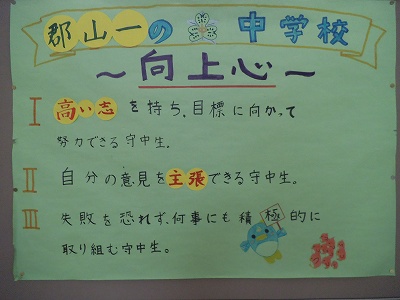 郡山一の 中学校
～向上心～
I 高い志を持ち、目標に向かって
努力できる守中生。
II 自分の意見を主張できる守中生。
III 失敗を恐れず、何事にも積極的に
取り組む守中生。